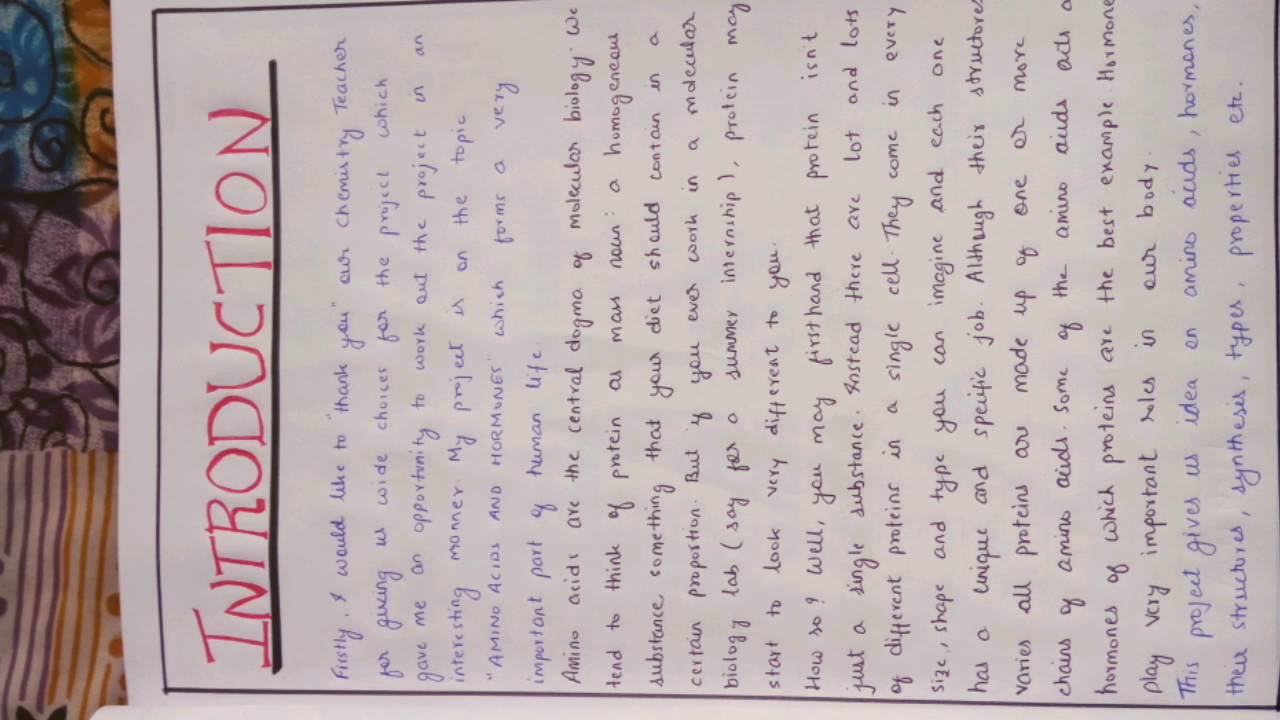 INTRODUCTION
Firstly, I would like to "thank you" our chemistry Teacher
for giving us wide choices for the project which
gave me an opportunity to work out the project in an
interesting manner. My project is on the topic
"AMINO ACIDS AND HORMONES" which forms a very
important part of human life.
Amino acids are the central dogma of molecular biology. We
tend to think of protein as mass noun: a homogeneous
substance, something that your diet should contain in a
certain proportion. But if you ever work in a molecular
biology lab (say for a summer internship), protein may
start to look very different to you.
How so? Well, you may firsthand that protein isn't
just a single substance. Instead there are lot and lots
of different proteins in a single cell. They come in every
size, shape and type you can imagine and each one
has a unique and specific job. Although their structures
varies all proteins are made up of one or more
chains of amino acids. Some of the amino acids acts a
hormones of which proteins are the best example. Hormone
play very important roles in our body.
This project gives us idea on amino acids, hormones,
their structures, synthesis, types, properties etc.